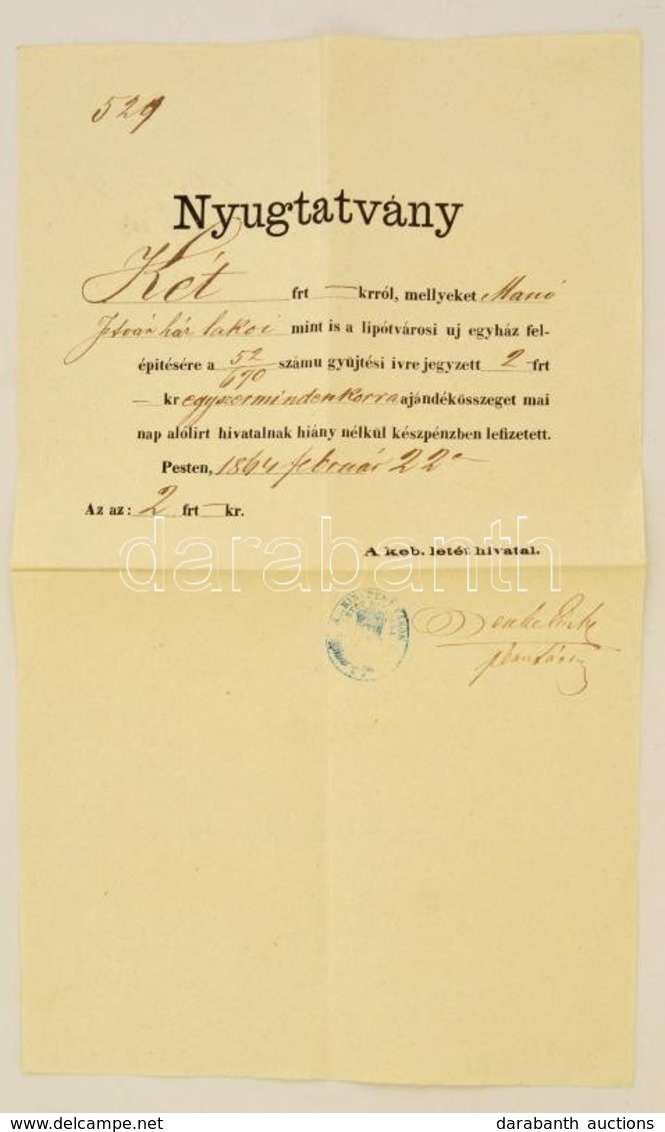 529
Nyugtatvány
Két frt — krról, mellyeket Manó
István ház lakói mint is a lipótvárosi uj egyház fel-
építésére a 52/690 számu gyüjtési ivre jegyzett 2 frt
— kr egyszermindenkorra ajándékösszeget mai
nap alólirt hivatalnak hiány nélkül készpénzben lefizetett.
Pesten, 1864 február 22
Az az: 2 frt — kr.
A keb. letét hivatal.
darabanth
www.delcampe.net
darabanth auctions